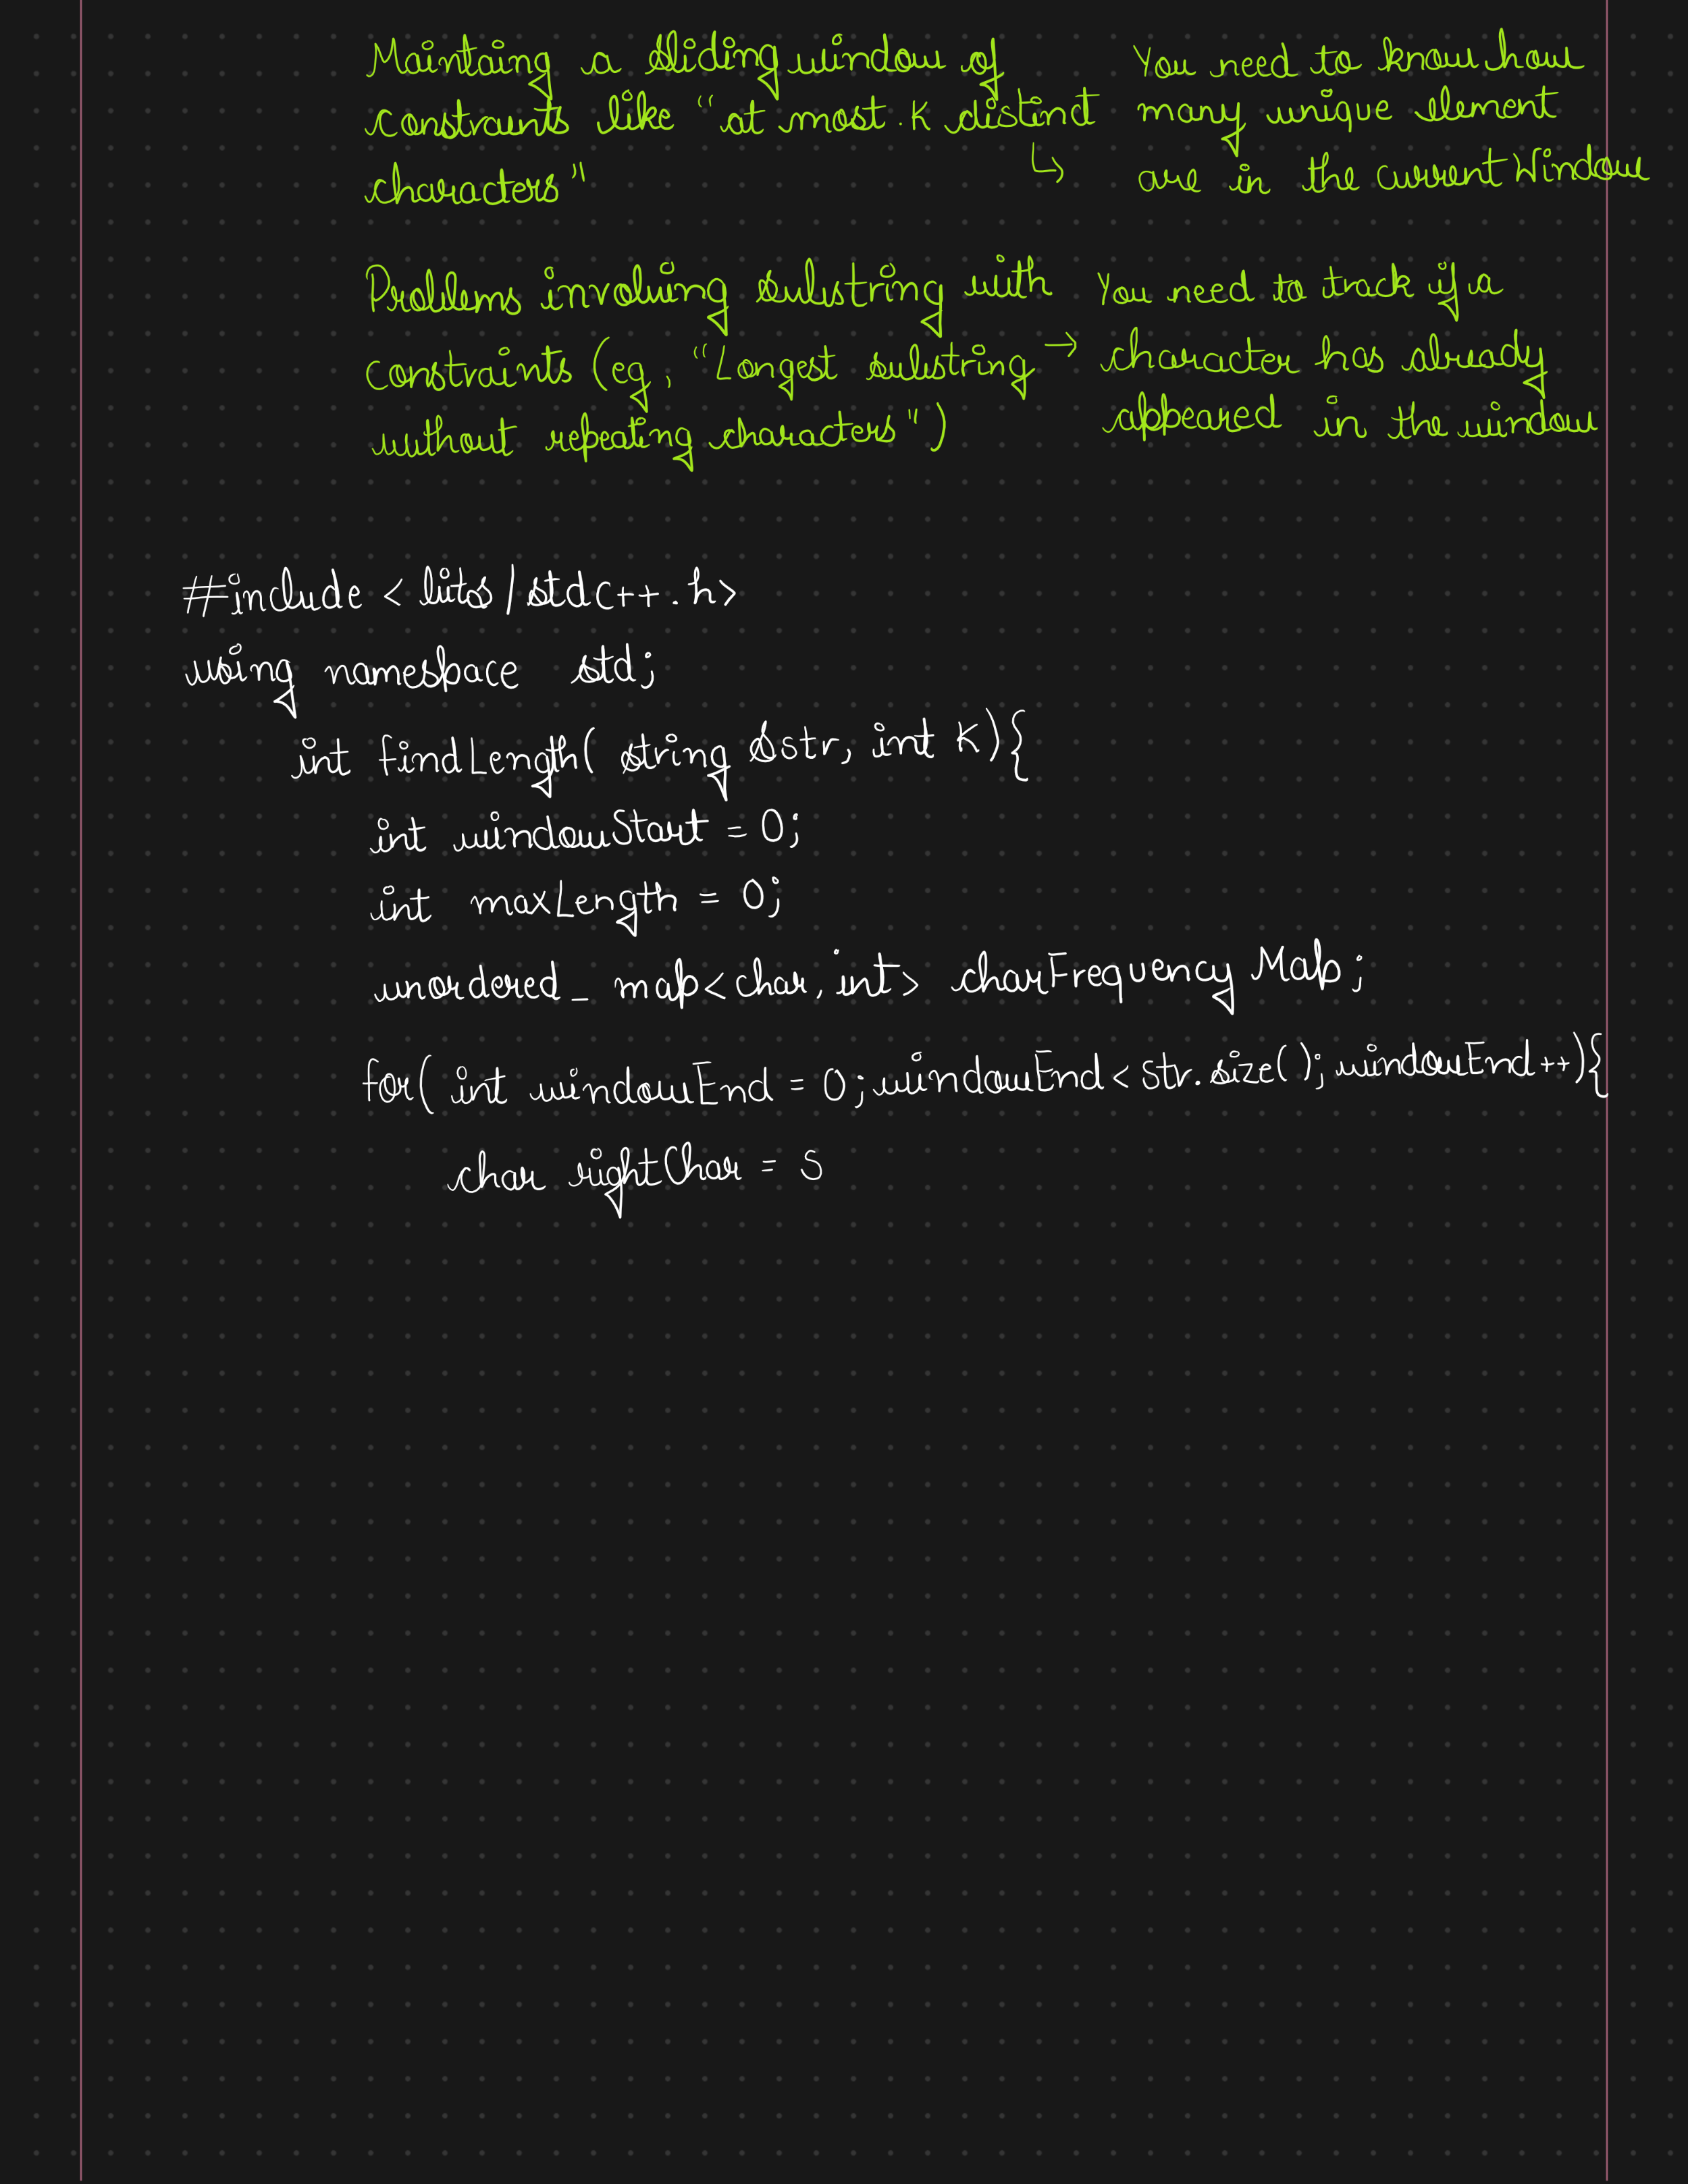 Maintaing a sliding window of
constraints like "at most K distinct
characters"
↳ You need to know how
many unique element
are in the current Window
Problems involving substring with
constraints (eg, "Longest substring
without repeating characters")
→ You need to track if a
character has already
appeared in the window
#include <bits/stdc++.h>
using namespace std;
int findLength( string &str, int K){
int windowStart = 0;
int maxLength = 0;
unordered_map<char, int> charFrequencyMap;
for( int windowEnd = 0; windowEnd < str.size(); windowEnd++){
char rightChar = s